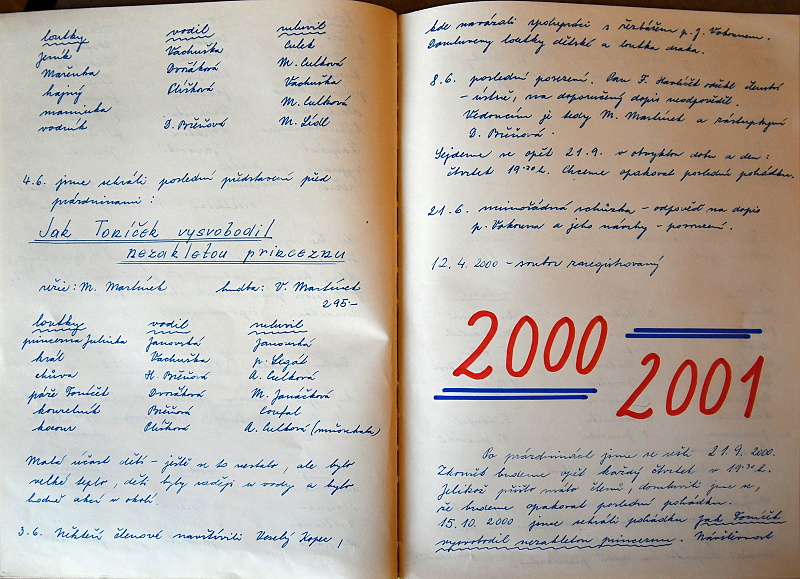 loutky vodil mluvil
Jeník Vachuška Culek
Mařenka Dvořáková M. Culková
hajný Plíšková Vachuška
maminka M. Culková
vodník D. Břéňová M. Lídl
4.6. jsme sehráli poslední představení před
prázdninami :
Jak Toníček vysvobodil
nezakletou princeznu
režie: M. Martínek hudba: V. Martínek
295-
loutky vodil mluvil
princezna Julinka Janovská Janovská
král Vachuška p. Legát
chůva H. Břéňová A. Culková
páže Toníček Dvořáková M. Janáčková
kouzelník Břéňová Coufal
kocour Plíšková A. Culková
Malá účast dětí - ještě se to nestalo, ale bylo
velké teplo, děti byly raději u vody a bylo
hodně akcí v okolí.
3.6. Někteří členové navštívili Veselý Kopec,
kde navázali spolupráci s řezbářem p. J. Vokounem.
Domluveny loutky dětské a loutka draka.
8.6. poslední posezení. Pan F. Havlíček odřekl členství
- ústně, na doporučený dopis neodpověděl.
Vedoucím je tedy M. Martínek a zástupkyní
D. Břéňová.
Sejdeme se opět 21.9. v obvyklou dobu a den:
čtvrtek 19.30 h. Chceme opakovat poslední pohádku.
21.6. mimořádná schůzka - odpověď na dopis
p. Vokouna a jeho návrhy - porovnání.
12.4. 2000 - soubor zaregistrovaný
2000
2001
Po prázdninách jsme se sešli 21.9. 2000.
Zkoušet budeme opět každý čtvrtek v 19.30 h.
Jelikož přišlo málo členů, domluvili jsme se,
že budeme opakovat poslední pohádku.
15.10. 2000 jsme sehráli pohádku Jak Toníček
vysvobodil nezakletou princeznu. Návštěvnost